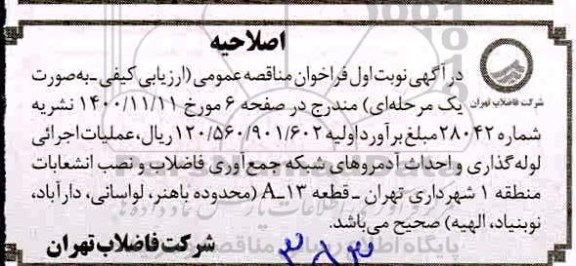 اصلاحیه
در آگهی نوبت اول فراخوان مناقصه عمومی (ارزیابی کیفی ـ به‌صورت
یک مرحله‌ای) مندرج در صفحه ۶ مورخ ۱۴۰۰/۱۱/۱۱ نشریه
شرکت فاضلاب تهران
شماره ۲۸۰۴۲ مبلغ برآورد اولیه ۱۲۰/۵۶۰/۹۰۱/۶۰۲ ریال، عملیات اجرائی
لوله‌گذاری و احداث آدمروهای شبکه جمع‌آوری فاضلاب و نصب انشعابات
منطقه ۱ شهرداری تهران ـ قطعه A_۱۳ (محدوده باهنر، لواسانی، دارآباد،
نوبنیاد، الهیه) صحیح می‌باشد.
شرکت فاضلاب تهران